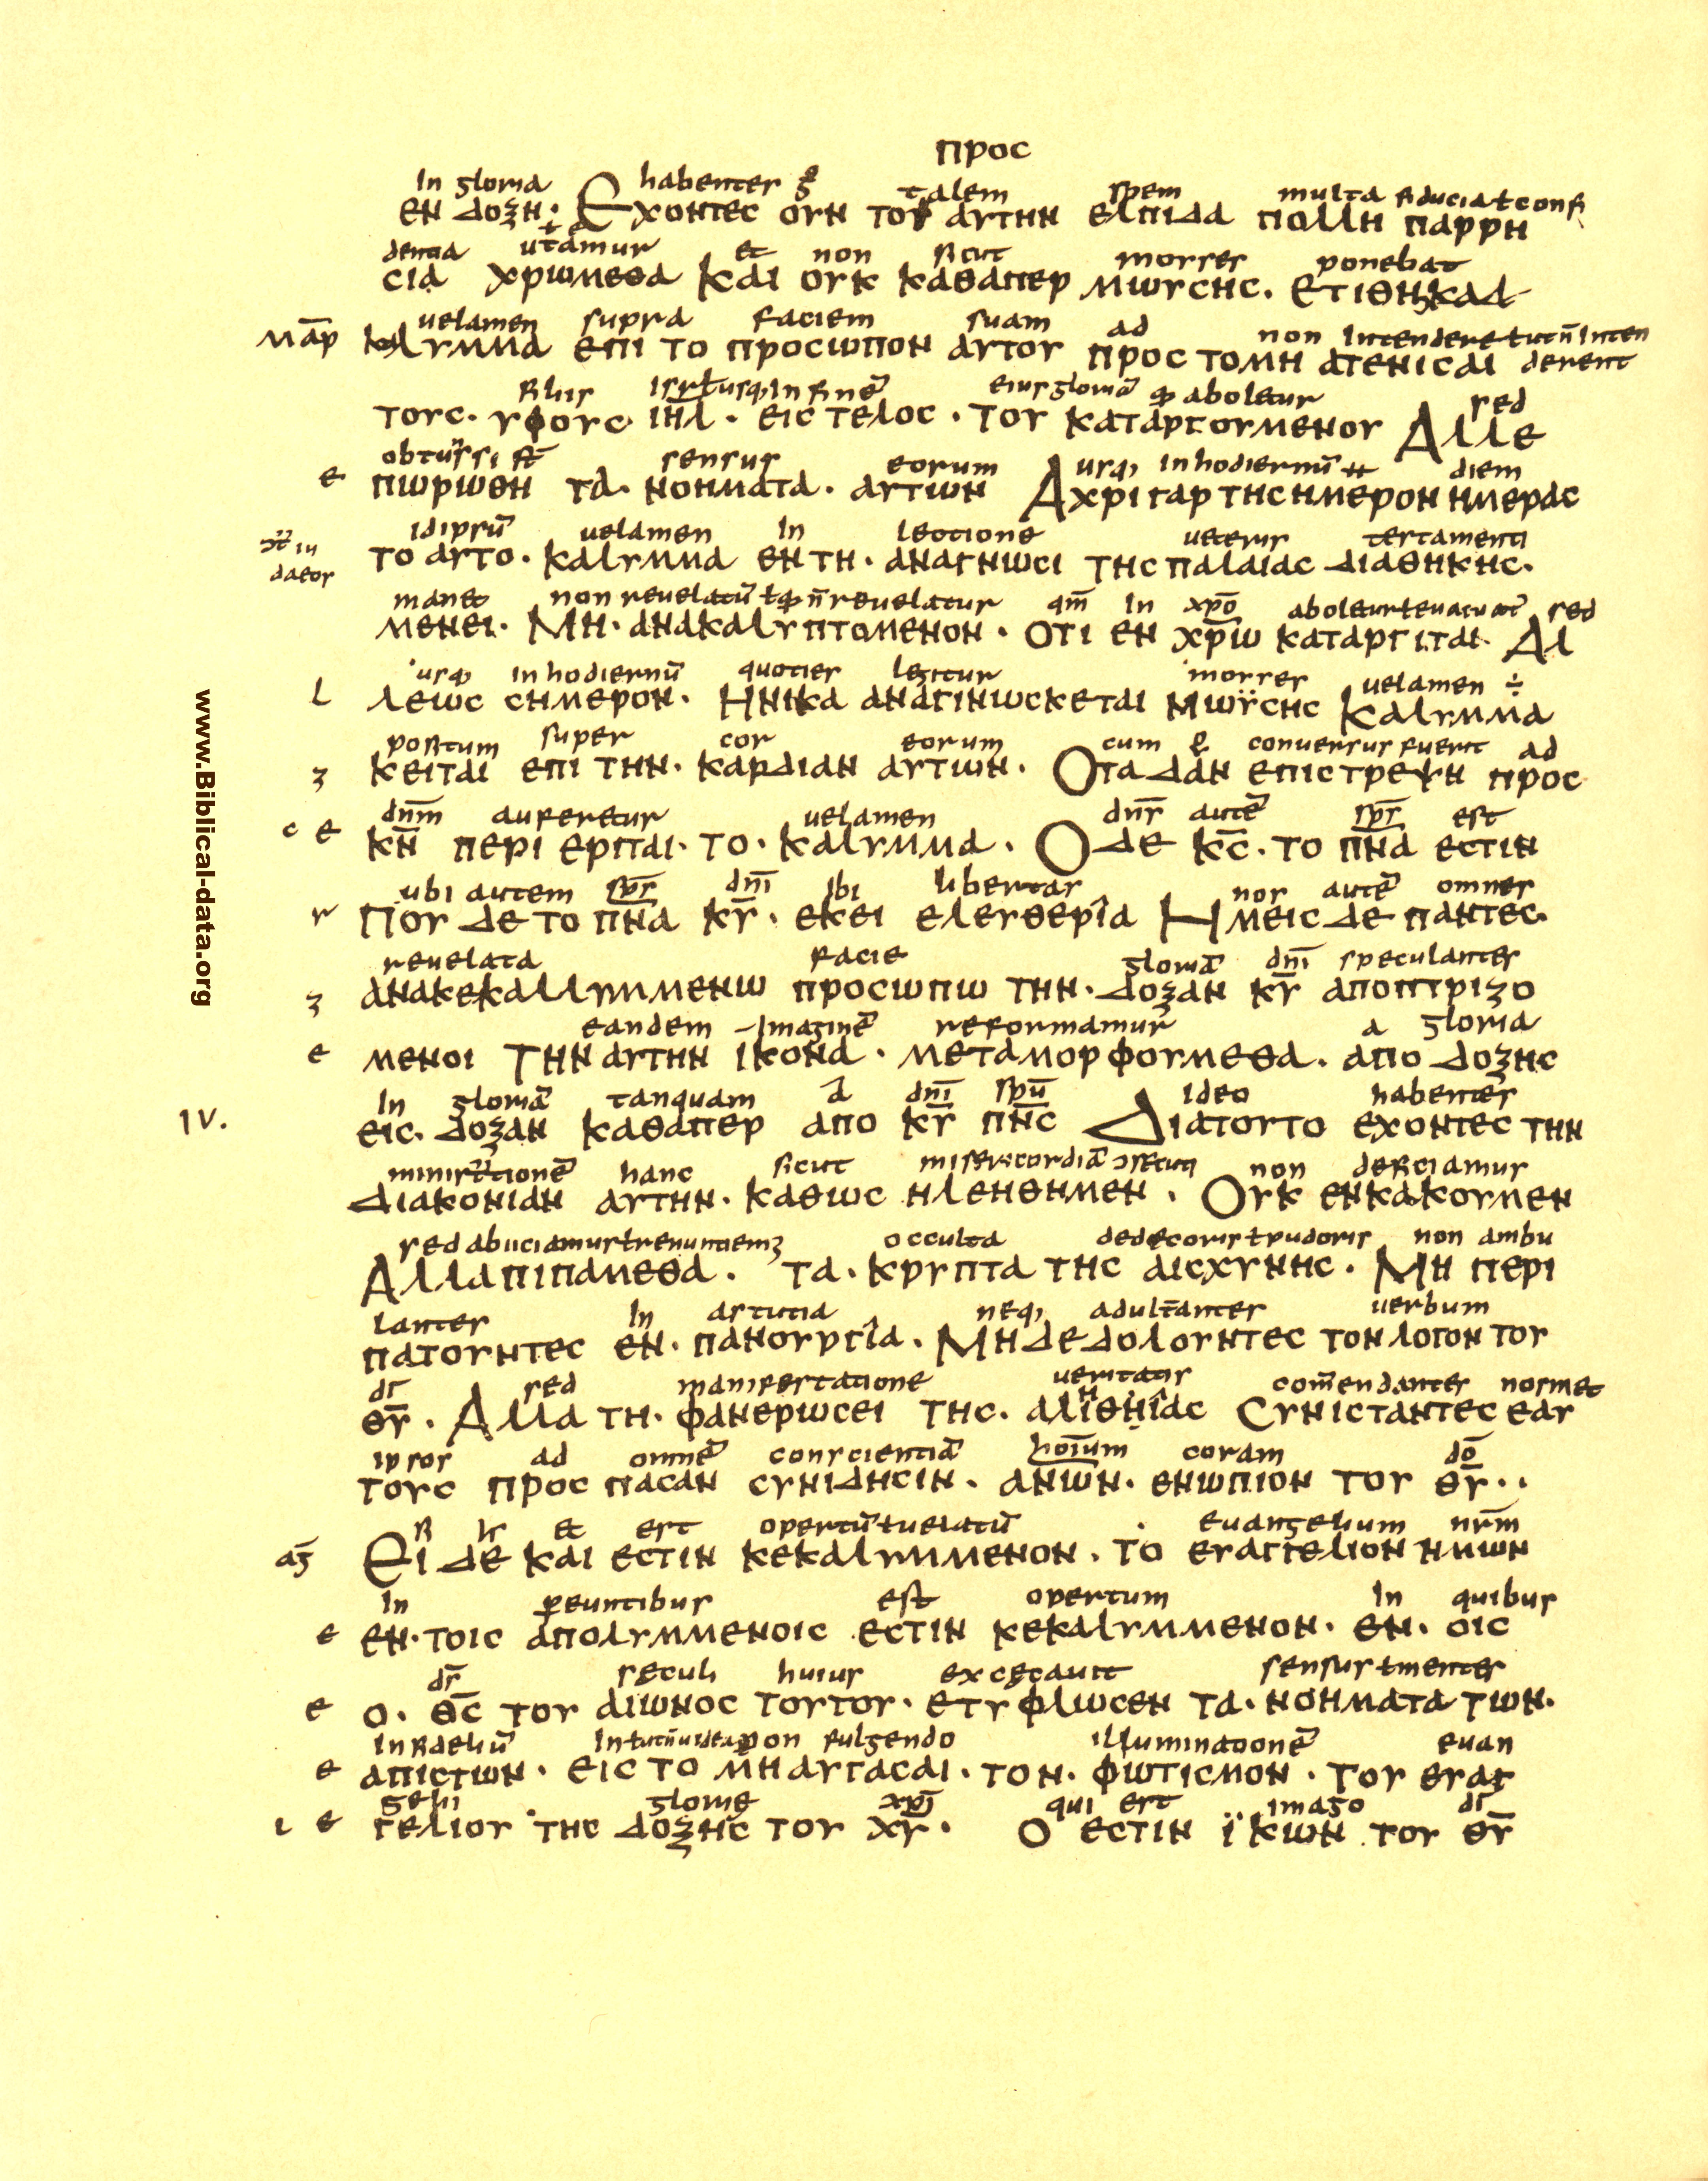 προς
In gloria habentes talem spem multa fiducia ł confi
εν δοξη· Εχοντες ουν του αυτην ελπιδα πολλη παρρη
dentia utamur et non sicut moyses ponebat
σια χρωμεθα και ουκ καθαπερ μωυσης. ετιθη καλ
uelamen supra faciem suam ad non Intenderet ł ut n̄ Inten
καλυμμα επι το προσωπον αυτου προς τομη ατενισαι derent
filiis usq; In finē eius gloriā q aboletur sed
τους· υφους ιη̄λ · εις τελος · του καταργουμενου Αλλε
sensus eorum usq; in hodiernū diem
ε πωρωθη τα· νοηματα · αυτων Αχρι γαρ της ημερον ημερας
idipsū uelamen In lectione ueteris testamenti
το αυτο· καλυμμα εν τη · αναγνωσι της παλαιας διαθηκης·
manet non reuelatū ł q n̄ reuelatur qm̄ In xp̄o sed
μενει· Μη· ανακαλυπτομενον · οτι εν χρ̄ω καταργιται· Αλ
usq; in hodiernū quoties legitur moyses uelamen ÷
λεως σημερον· Ηνικα αναγινωσκεται Μωϋσης καλυμμα
positum super cor eorum cum conuersus fuerit ad
κειται επι την· καρδιαν αυτων· Οτα δαν επιστρεψη προς
dn̄m auferetur uelamen dn̄s autē sp̄s est
ε κ̄ν περι εριται· το· καλυμμα · Ο δε κ̄ς· το π̄να εστιν
ubi autem sp̄s dn̄i ibi libertas nos autē omnes
Που δε το π̄να κ̄υ · εκει ελευθερια Ημεις δε παντες·
reuelata facie gloriā dn̄i speculantes
ανακεκαλλυμμενω προσωπω την· δοξαν κ̄υ αποπτριζο
eandem Imaginē reformamur a gloria
ε μενοι Την αυτην ικονα · μεταμορφουμεθα · απο δοξης
In gloriā tanquam a dn̄i sp̄u Ideo habentes
IV. εις· δοξαν καθαπερ απο κ̄υ π̄νς Διατουτο εχοντες την
ministrationē hanc sicut misericordiā non deficiamus
διακονιαν αυτην· καθως ηλεηθημεν · Ουκ ενκακουμεν
sed abiiciamus occulta dedecoris ł pudoris non ambu
Αλλαπιπαμεθα · τα · κρυπτα της αισχυνης · Μη περι
lantes In astutia neq; adulterantes uerbum
πατουντες εν · πανουργια · Μηδε δολουντες τον λογον του
d̄ī sed manifestatione ueritatis com̄endantes nosmet
θ̄υ · Αλλα τη· φανερωσει της· αλιθηιας Συνισταντες εαυ
ipsos ad omnē conscientiā hoīum coram d̄o
τους προς πασαν συνιδησιν · ᾱνων· ενωπιον του θ̄υ ··
et est opertū ł uelatū euangelium nr̄m
Ει δε και εστιν κεκαλυμμενον · το ευαγγελιον ημων
In p̄euntibus est opertum In quibus
ε εν· τοις απολυμμενοις εστιν κεκαλυμμενον· εν · οις
d̄s seculi huius excęcauit sensus ł mentes
ε ο· θ̄ς του αιωνος τουτου· ετυφλωσεν τα· νοηματα των·
Infideliū fulgendo illuminationē euan
ε απιστων · εις το μη αυγασαι · τον· φωτισμον · του ευαγ
gelii glorię xp̄i qui est imago d̄ī
ι ε γελιου της δοξης του χ̄υ · Ο εστιν ϊκων του θ̄υ
www.Biblical-data.org